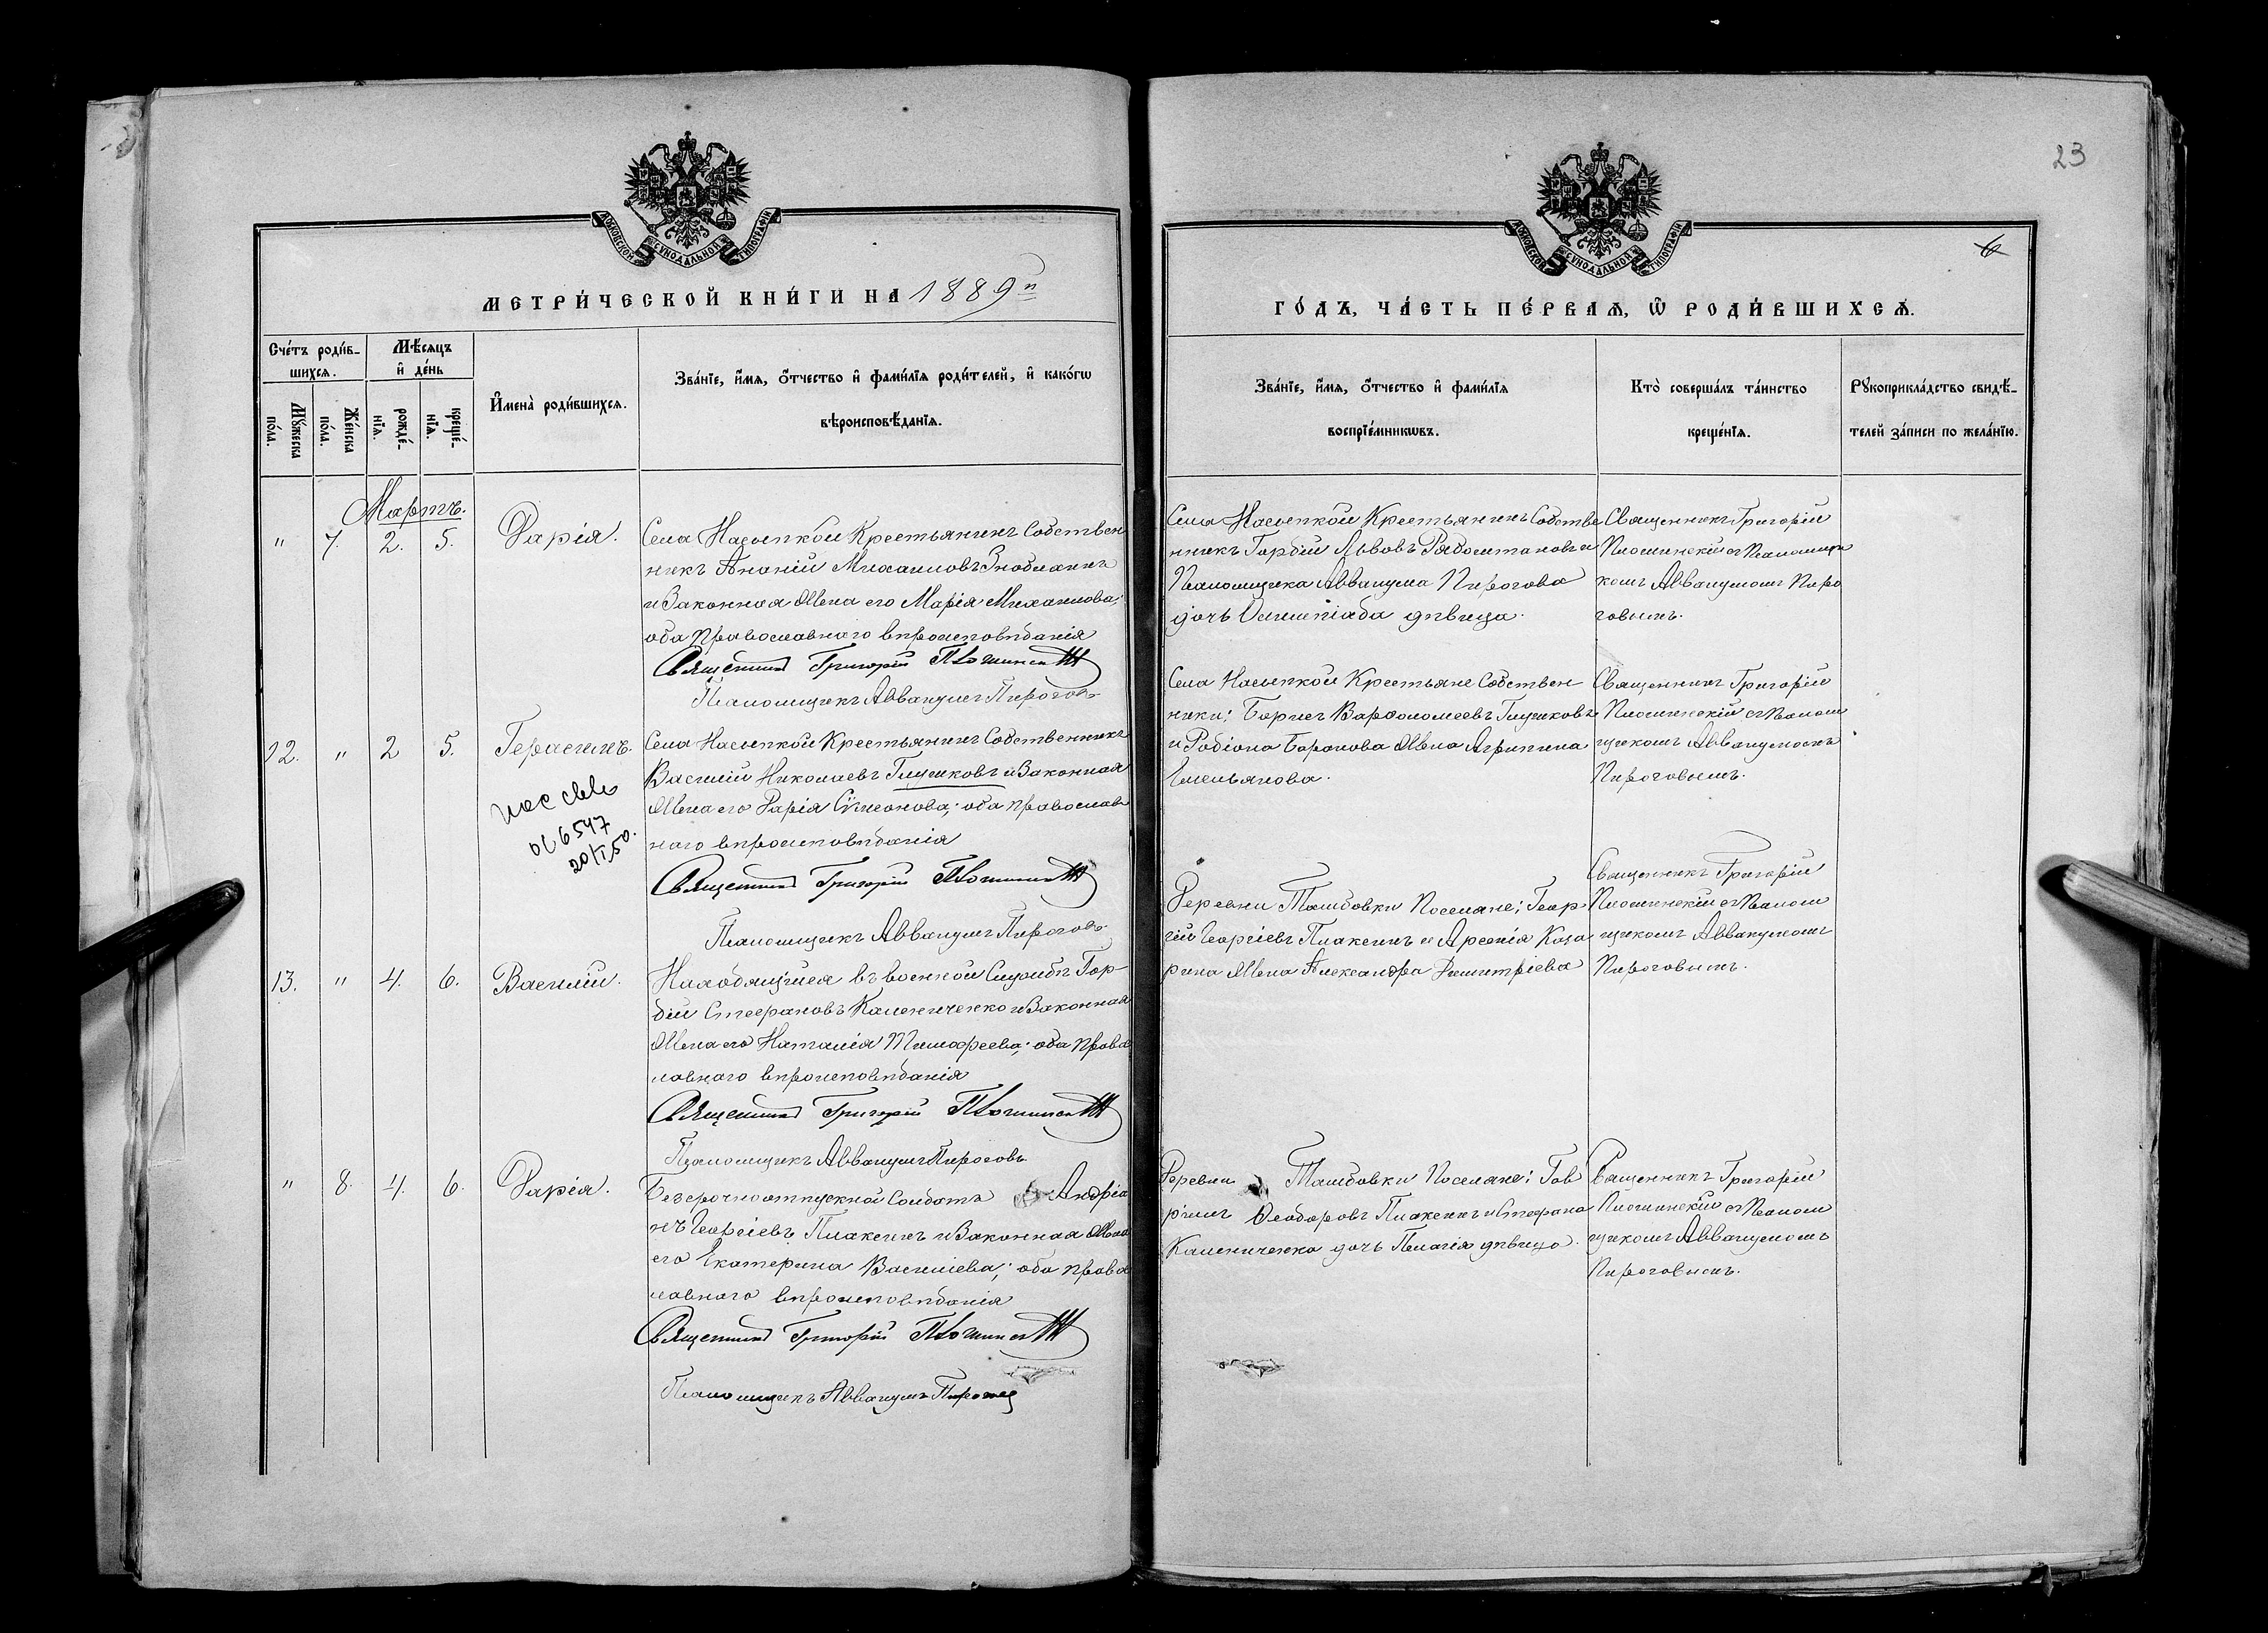 23
6
МОСКОВСКОЙ СѴНОДАЛЬНОЙ ТИПОГРАФІИ
МОСКОВСКОЙ СѴНОДАЛЬНОЙ ТИПОГРАФІИ
МЕТРИ́ЧЕСКОЙ КНИ́ГИ НА 1889й
ГО́ДЪ, ЧА́СТЬ ПЕ́РВАЯ, Ѿ РОДИ́ВШИХСЯ.
Сче́тъ роди́в-
шихся.
Мѣ́сяцъ
и де́нь
Мꙋ́жеска
по́ла.
Же́нска
по́ла.
рожде́-
нїя.
креще́-
нїя.
И҆мена̀ роди́вшихся.
Зва́нїе, и҆́мя, ѻ҆́тчество и҆ фами́лїя роди́телей, и҆ како́гѡ
вѣроисповѣ́данїя.
Зва́нїе, и҆́мя, ѻ҆́тчество и҆ фами́лїя
воспрїе́мникѡвъ.
Кто̀ соверша́лъ та́инство
креще́нїя.
Рꙋкоприкла́дство свидѣ́-
телей за́писи по жела́нїю.
Мартъ.
" 7. 2. 5. Дарія.
Села Насыпкой Крестьянинъ Собствен
никъ Ананій Михаиловъ Знобилинъ
и Законная Жена его Марія Михаилова;
оба православнаго вѣроисповѣданія
Священникъ Григорій
Псаломщикъ Аввакумъ Пироговъ
Села Насыпкой Крестьянинъ Собстве
нникъ Гордій Львовъ и
Псаломщика Аввакума Пирогова
дочь Олимпіада дѣвица.
Священникъ Григорій
съ Псаломщи
комъ Аввакумомъ Пиро
говымъ.
12. " 2 5. Герасимъ.
Села Насыпкой Крестьянинъ Собственникъ
Василій Николаевъ Глушковъ и Законная
Жена его Дарія Сѵмеонова; оба православ
наго вѣроисповѣданія
Священникъ Григорій
Псаломщикъ Аввакумъ Пироговъ
6547
20/I 50.
Села Насыпкой Крестьяне Собствен
ники: Борисъ Варѳоломеевъ Глушковъ
и Родіона Баранова Жена Агрипина
Емельянова.
Священникъ Григорій
съ Псалом
щикомъ Аввакумомъ
Пироговымъ.
13. " 4. 6. Василій.
Находящійся въ военной Службѣ Гор-
дій Стефановъ Калениченко и Законная
Жена его Наталія Тимофеева; оба право
лавнаго вѣроисповѣданія
Священникъ Григорій
Псаломщикъ Аввакумъ Пироговъ
Деревни Тамбовки Поселяне: Геор
гій Георгіевъ Плаксинъ и Арсенія Каза
рина Жена Александра Димитріева
Священникъ Григорій
съ Псалом
щикомъ Аввакумомъ
Пироговымъ.
" 8. 4. 6. Дарія.
Безсрочноотпускной Солдатъ Андріа
нъ Георгіевъ Плаксинъ и Законная Жена
его Екатерина Василіева; оба право
лавнаго вѣроисповѣданія
Священникъ Григорій
Псаломщикъ Аввакумъ Пироговъ
Деревни Тамбовки Поселяне: Гав
ріилъ Ѳеодоровъ Плаксинъ и Стефана
Калениченка дочь Пелагія дѣвица.
Священникъ Григорій
съ Псалом
щикомъ Аввакумомъ
Пироговымъ.